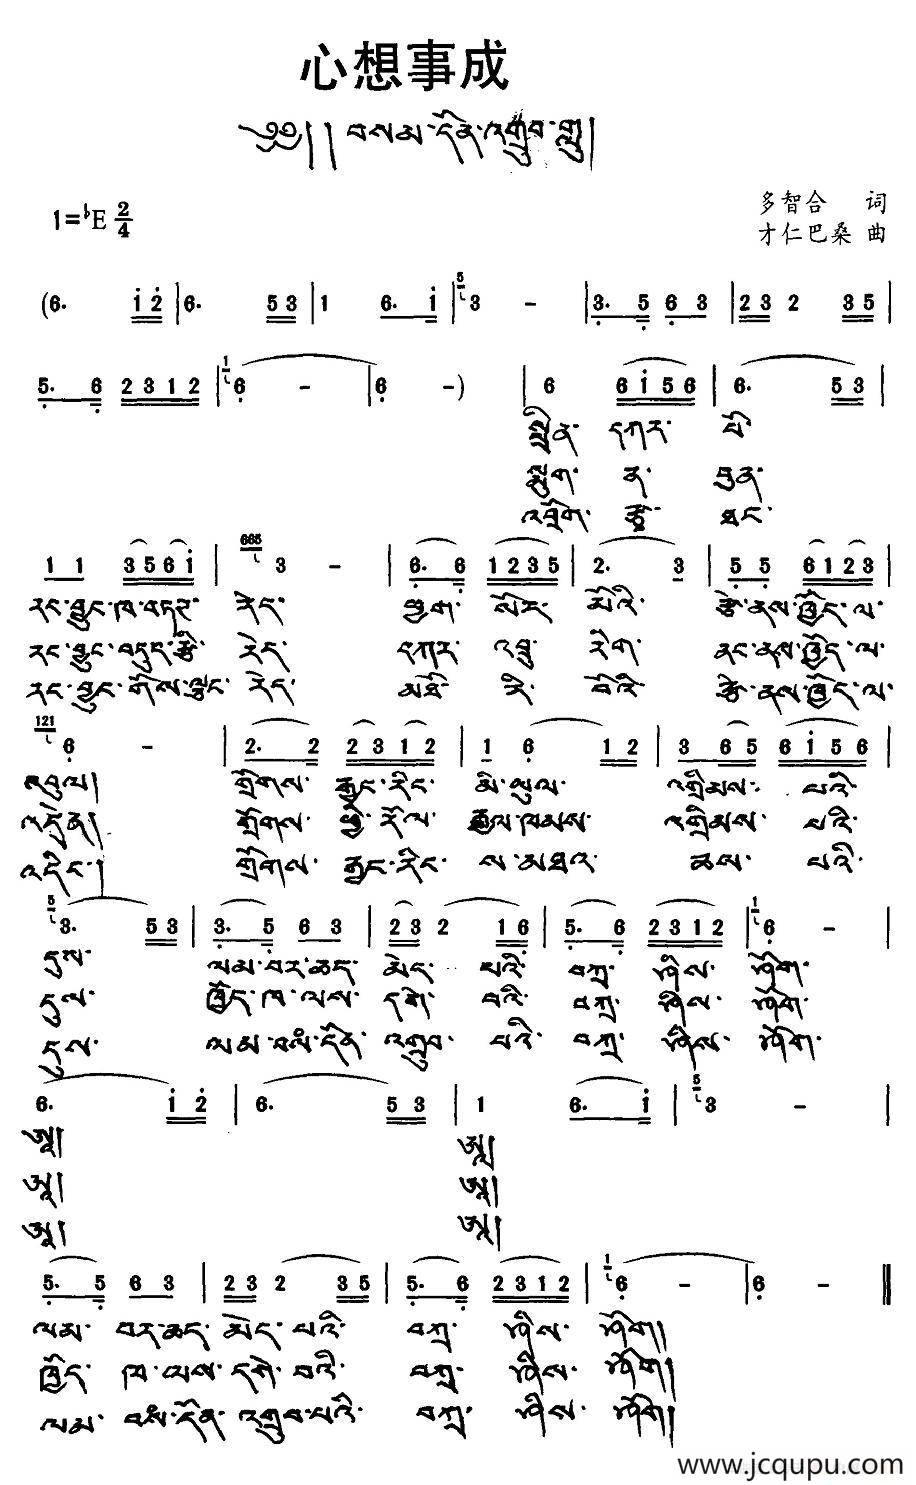 心想事成
༄༅། །བསམ་དོན་འགྲུབ་གླུ།
1=♭E 2/4
多智合 词
才仁巴桑 曲
(6. i 2 | 6. 5 3 | 1 6. i | 3 - | 3. 5 6 3 | 2 3 2 3 5 |
5. 6 2 3 1 2 | 6 - | 6 - ) | 6 6 i 5 6 | 6. 5 3 |
སྤྲིན་ དཀར་ པོ་
ལུག་ ན་
འབྲོག་ རྩྭ་ ཐང་
1 1 3 5 6 i | 3 - | 6. 6 1 2 3 5 | 2. 3 | 5 5 6 1 2 3 |
རང་བྱུང་ཁ་བཏར་ རེད་ ཕྱུག་ པོར་ མོའི་ རྩེ་ནས་ཁྱོད་ལ་
རང་བྱུང་བདུད་རྩི་ རེད་ དཀར་ འབྲུ་ རིག་ ནང་ནས་ཁྱོད་ལ་
རང་བྱུང་གོས་ལྗང་ རེད་ མཐོ་ རི་ བོའི་ རྩེ་ནས་ཁྱོད་ལ་
6 - | 2. 2 2 3 1 2 | 1 6 1 2 | 3 6 5 6 i 5 6 |
འབུལ། གྲོགས་ རྒྱང་རིང་ མི་ཡུལ་ འགྲིམས་ པའི་
འདྲེན། གྲོགས་ ཕྱི་རོལ་ རྒྱལ་ཁམས་ འགྲིམས་ པའི་
འདེང་། གྲོགས་ རྒྱང་རིང་ ས་མཐའ་ ཆས་ པའི་
3. 5 3 | 3. 5 6 3 | 2 3 2 1 6 | 5. 6 2 3 1 2 | 6 - |
དུས་ ལམ་བར་ཆད་ མེད་ པའི་ བཀྲ་ ཤིས་ ཤོག་
དུས་ ཁྱོད་ཁ་ལས་ དགེ་ བའི་ བཀྲ་ ཤིས་ ཤོག་
དུས་ ལམ་བསཾ་དོན་ འགྲུབ་ པའི་ བཀྲ་ ཤིས་ ཤོག་
6. i 2 | 6. 5 3 | 1 6. i | 3 - |
ཨཱ། ཨཱ།
ཨཱ། ཨཱ།
ཨཱ། ཨཱ།
5. 5 6 3 | 2 3 2 3 5 | 5. 6 2 3 1 2 | 6 - | 6 - ‖
ལམ་ བར་ཆད་ མེད་ པའི་ བཀྲ་ ཤིས་ ཤོག།
ཁྱོད་ ཁ་ལས་ དགེ་ བའི་ བཀྲ་ ཤིས་ ཤོག།
ལམ་ བསཾ་དོན་ འགྲུབ་པའི་ བཀྲ་ ཤིས་ ཤོག།
www.jcqupu.com